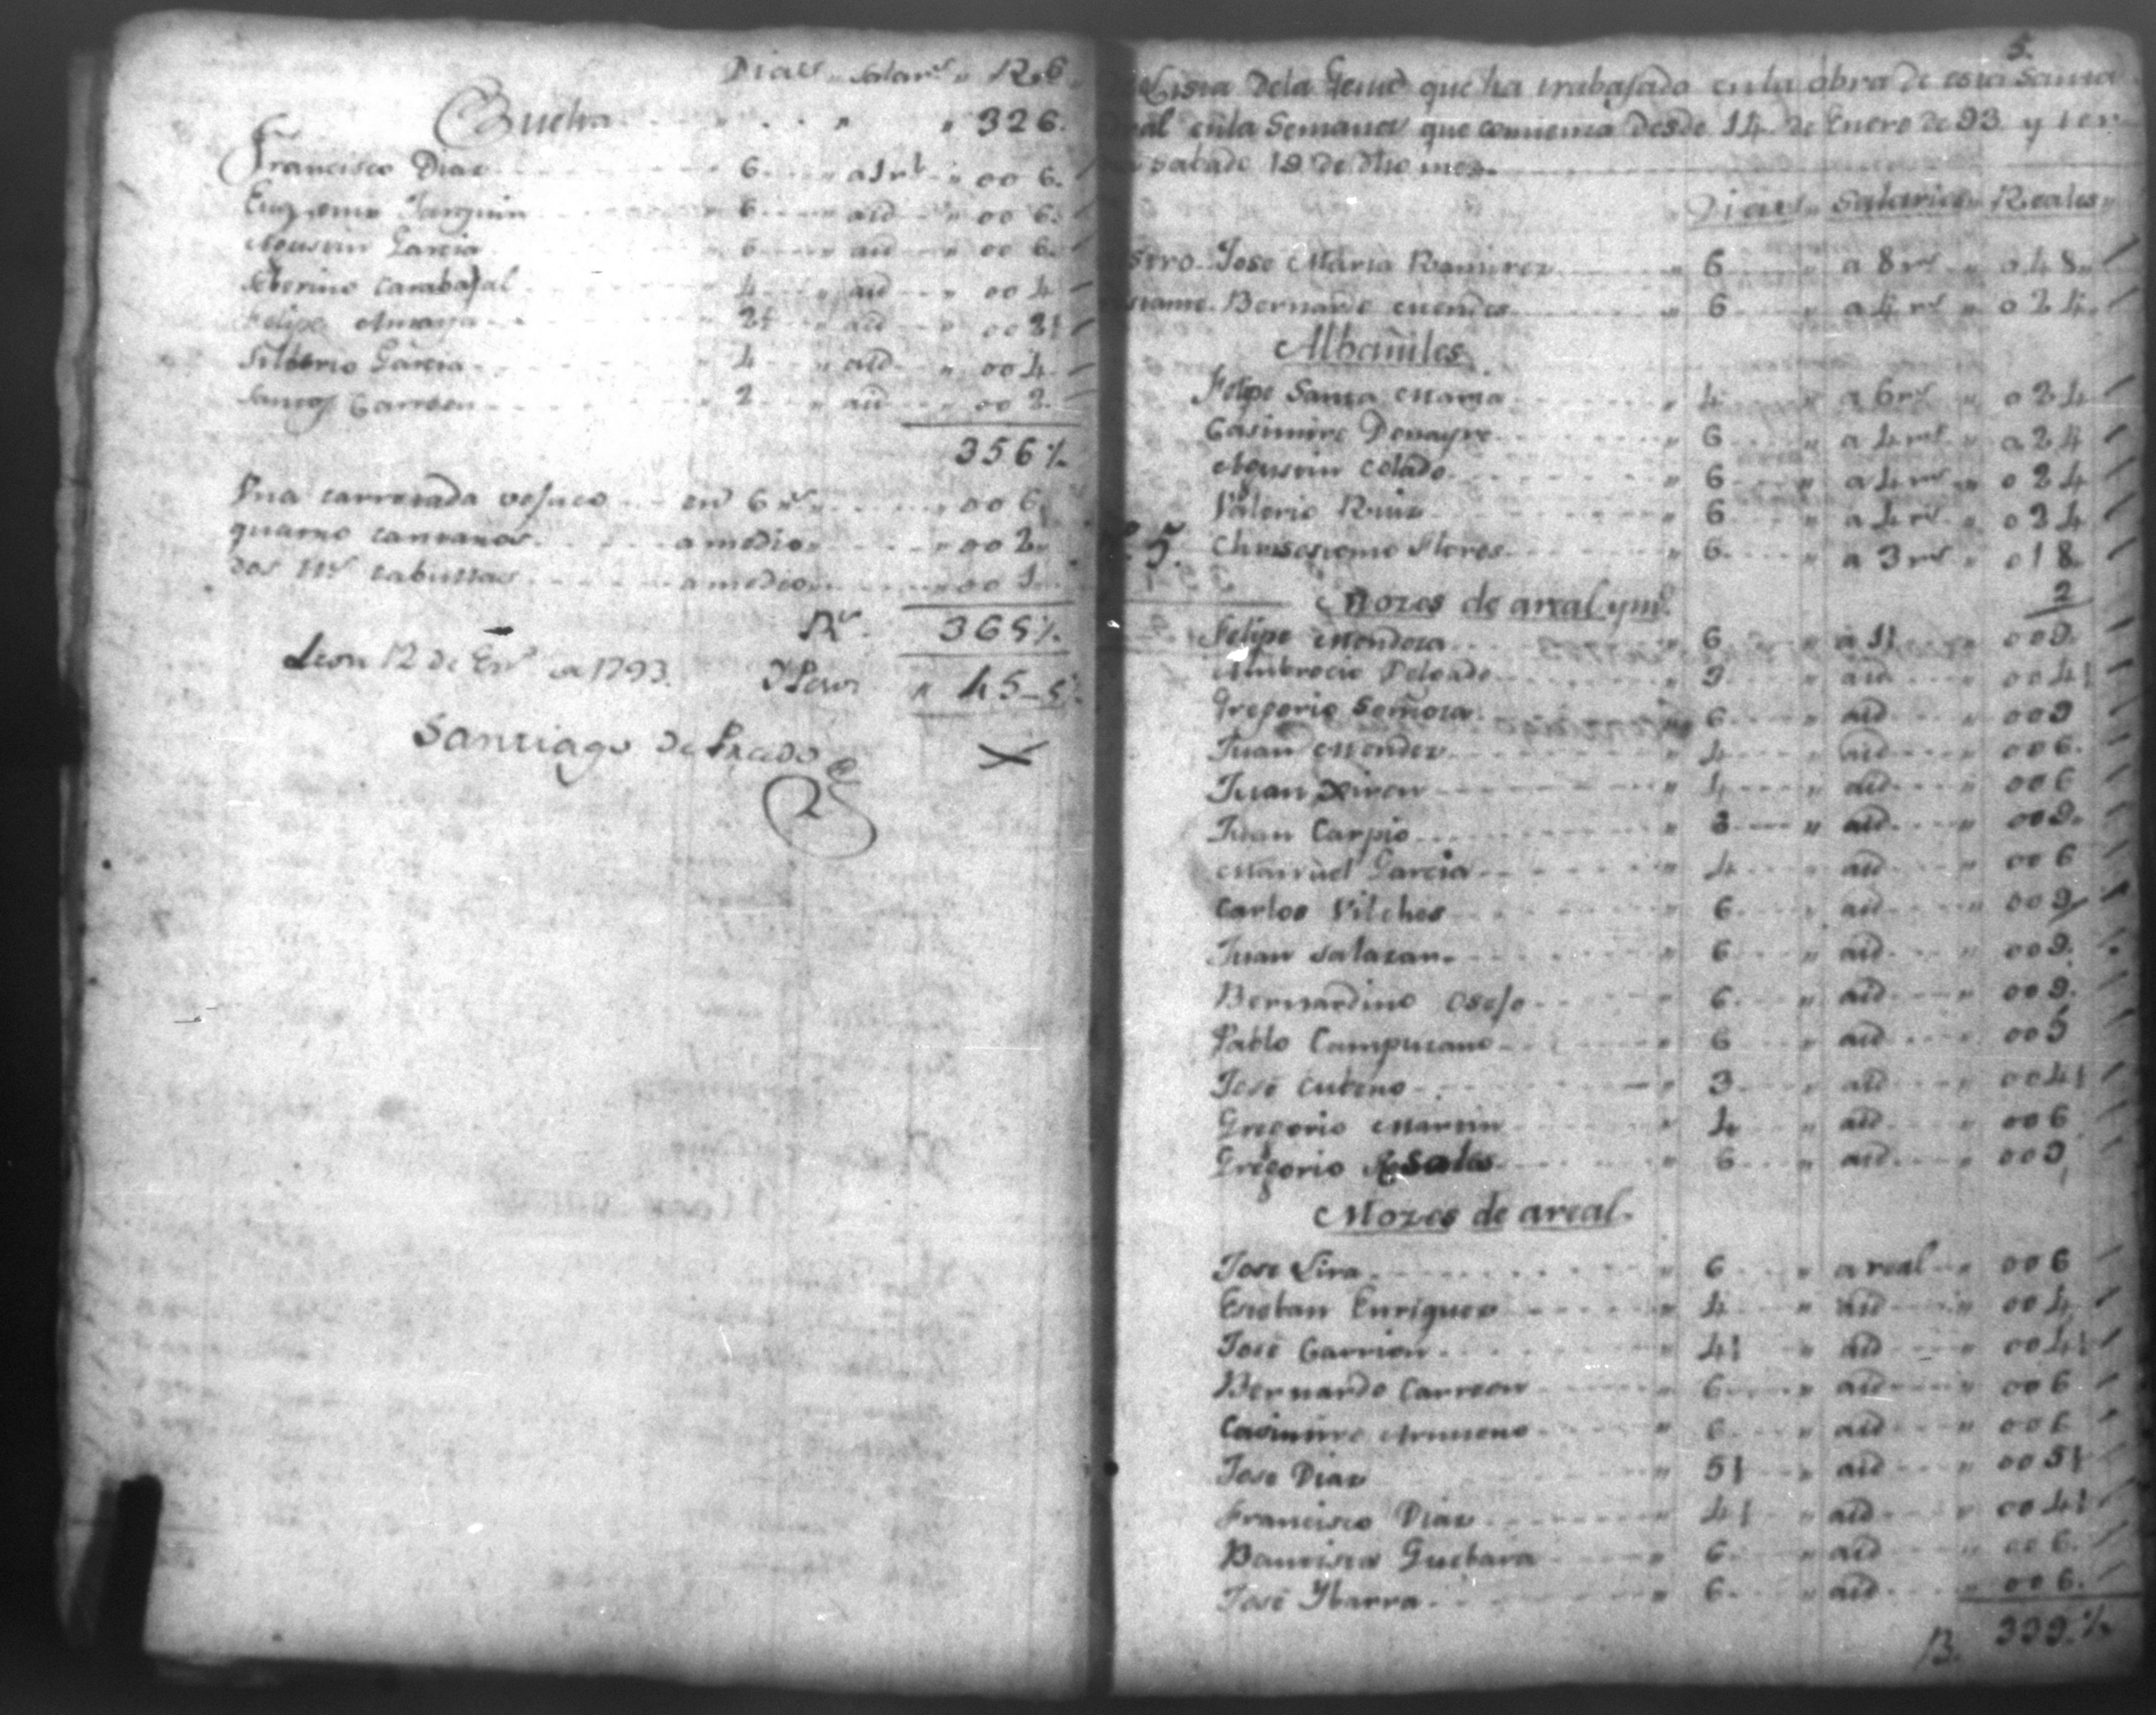 Dias " Salar.s " R.s
Buelta " " 326.
Francisco Diaz 6 a 1 r.l " 006.
Eugenio Jarquin 6 aid " 006.
Agustin Garcia 6 aid 006.
Seberino Carabajal 4 aid 004
Felipe Amaya 2½ aid 002½
Silberio Garcia 4 aid 004
Santos Carreon 2 aid 002
356½
Una carretada vejuco en 6 r.s 006
quatro cantaros a medio 002
dos a medio 001
R.s 365½
Leon 12 de En.o de 1793. P.sos " 45-5½
Santiago de Prado
5.
Lista de la Gente que ha trabajado en la obra de esta Santa
en la Semana que comienza desde 14 de Enero de 93 y ter
sabado 19 de dho mes.
Dias " Salarios " Reales "
stro. Jose Maria Ramirez " 6 " a 8 r.s " 048
Bernardo Mendes " 6 " a 4 r.s " 024
Albañiles
Felipe Santa Maria " 4 " a 6 r.s " 024
Casimiro Donayre 6 " a 4 r.s " 024
Agustin Colado " 6 " a 4 r.s " 024
Valerio Ruiz " 6 " a 4 r.s " 024
5. Chrisostomo Flores " 6 " a 3 r.s " 018
Mozos de a real y m.o
2
Felipe Mendoza " 6 " a 1½ 009
Ambrocio Delgado 3 " aid " 004½
Gregorio Somoza " 6 " aid " 009
Juan Mendez " 4 " aid " 006.
Juan Xiron " 4 " aid " 006
Juan Carpio " 6 " aid " 009.
Manuel Garcia " 4 aid " 006
Carlos Vilches " 6 " aid " 009
Juan Salazar " 6 " aid " 009.
Bernardino Osejo " 6 " aid " 009.
Pablo Campuzano " 6 " aid 009
Jose Cubero " 3 " aid " 004½
Gregorio Martin " 4 " aid " 006
Gregorio Rosales " 6 " aid " 009
Mozos de a real.
Jose Lira " 6 " a real " 006
Esteban Enriquez " 4 " aid " 004
Jose Carrion 4½ " aid " 004½
Bernardo Carreon " 6 " aid " 006
Casimiro " 6 " aid " 006
Jose Diaz " 5½ " aid " 005½
Francisco Diaz " 4½ " aid " 004½
Bautista Guebara " 6 " aid " 006.
José Ybarra " 6 " aid " 006.
B. 339.½